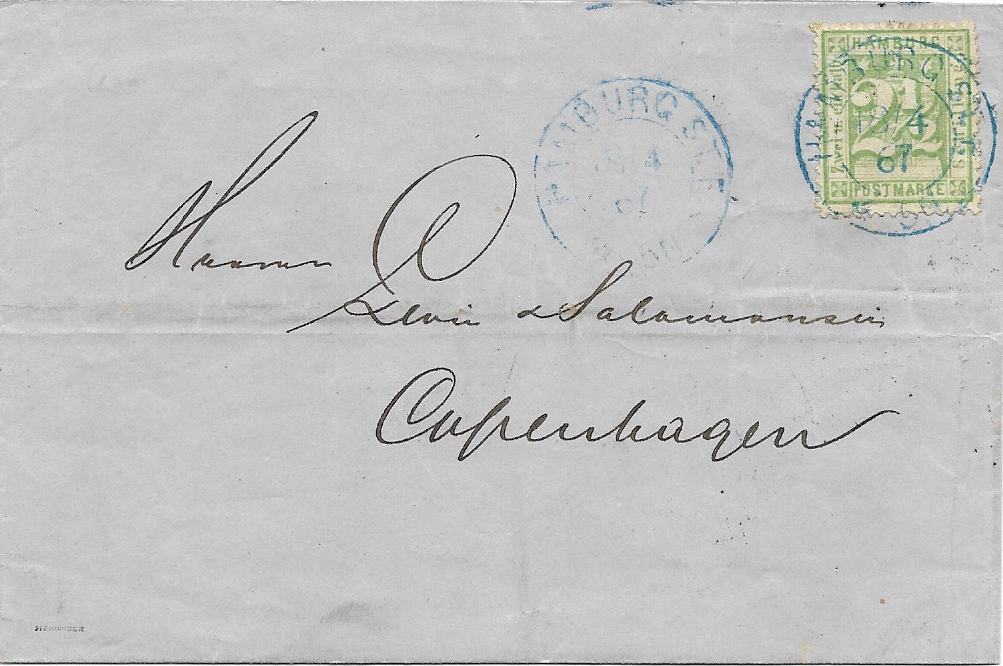 HAMBURG
2½
POSTMARKE
HAMBURG ST.P.
18/4
67
HAMBURG ST.P.
18/4
67
Herren
Levin & Salomonsen
Copenhagen
PFENNINGER